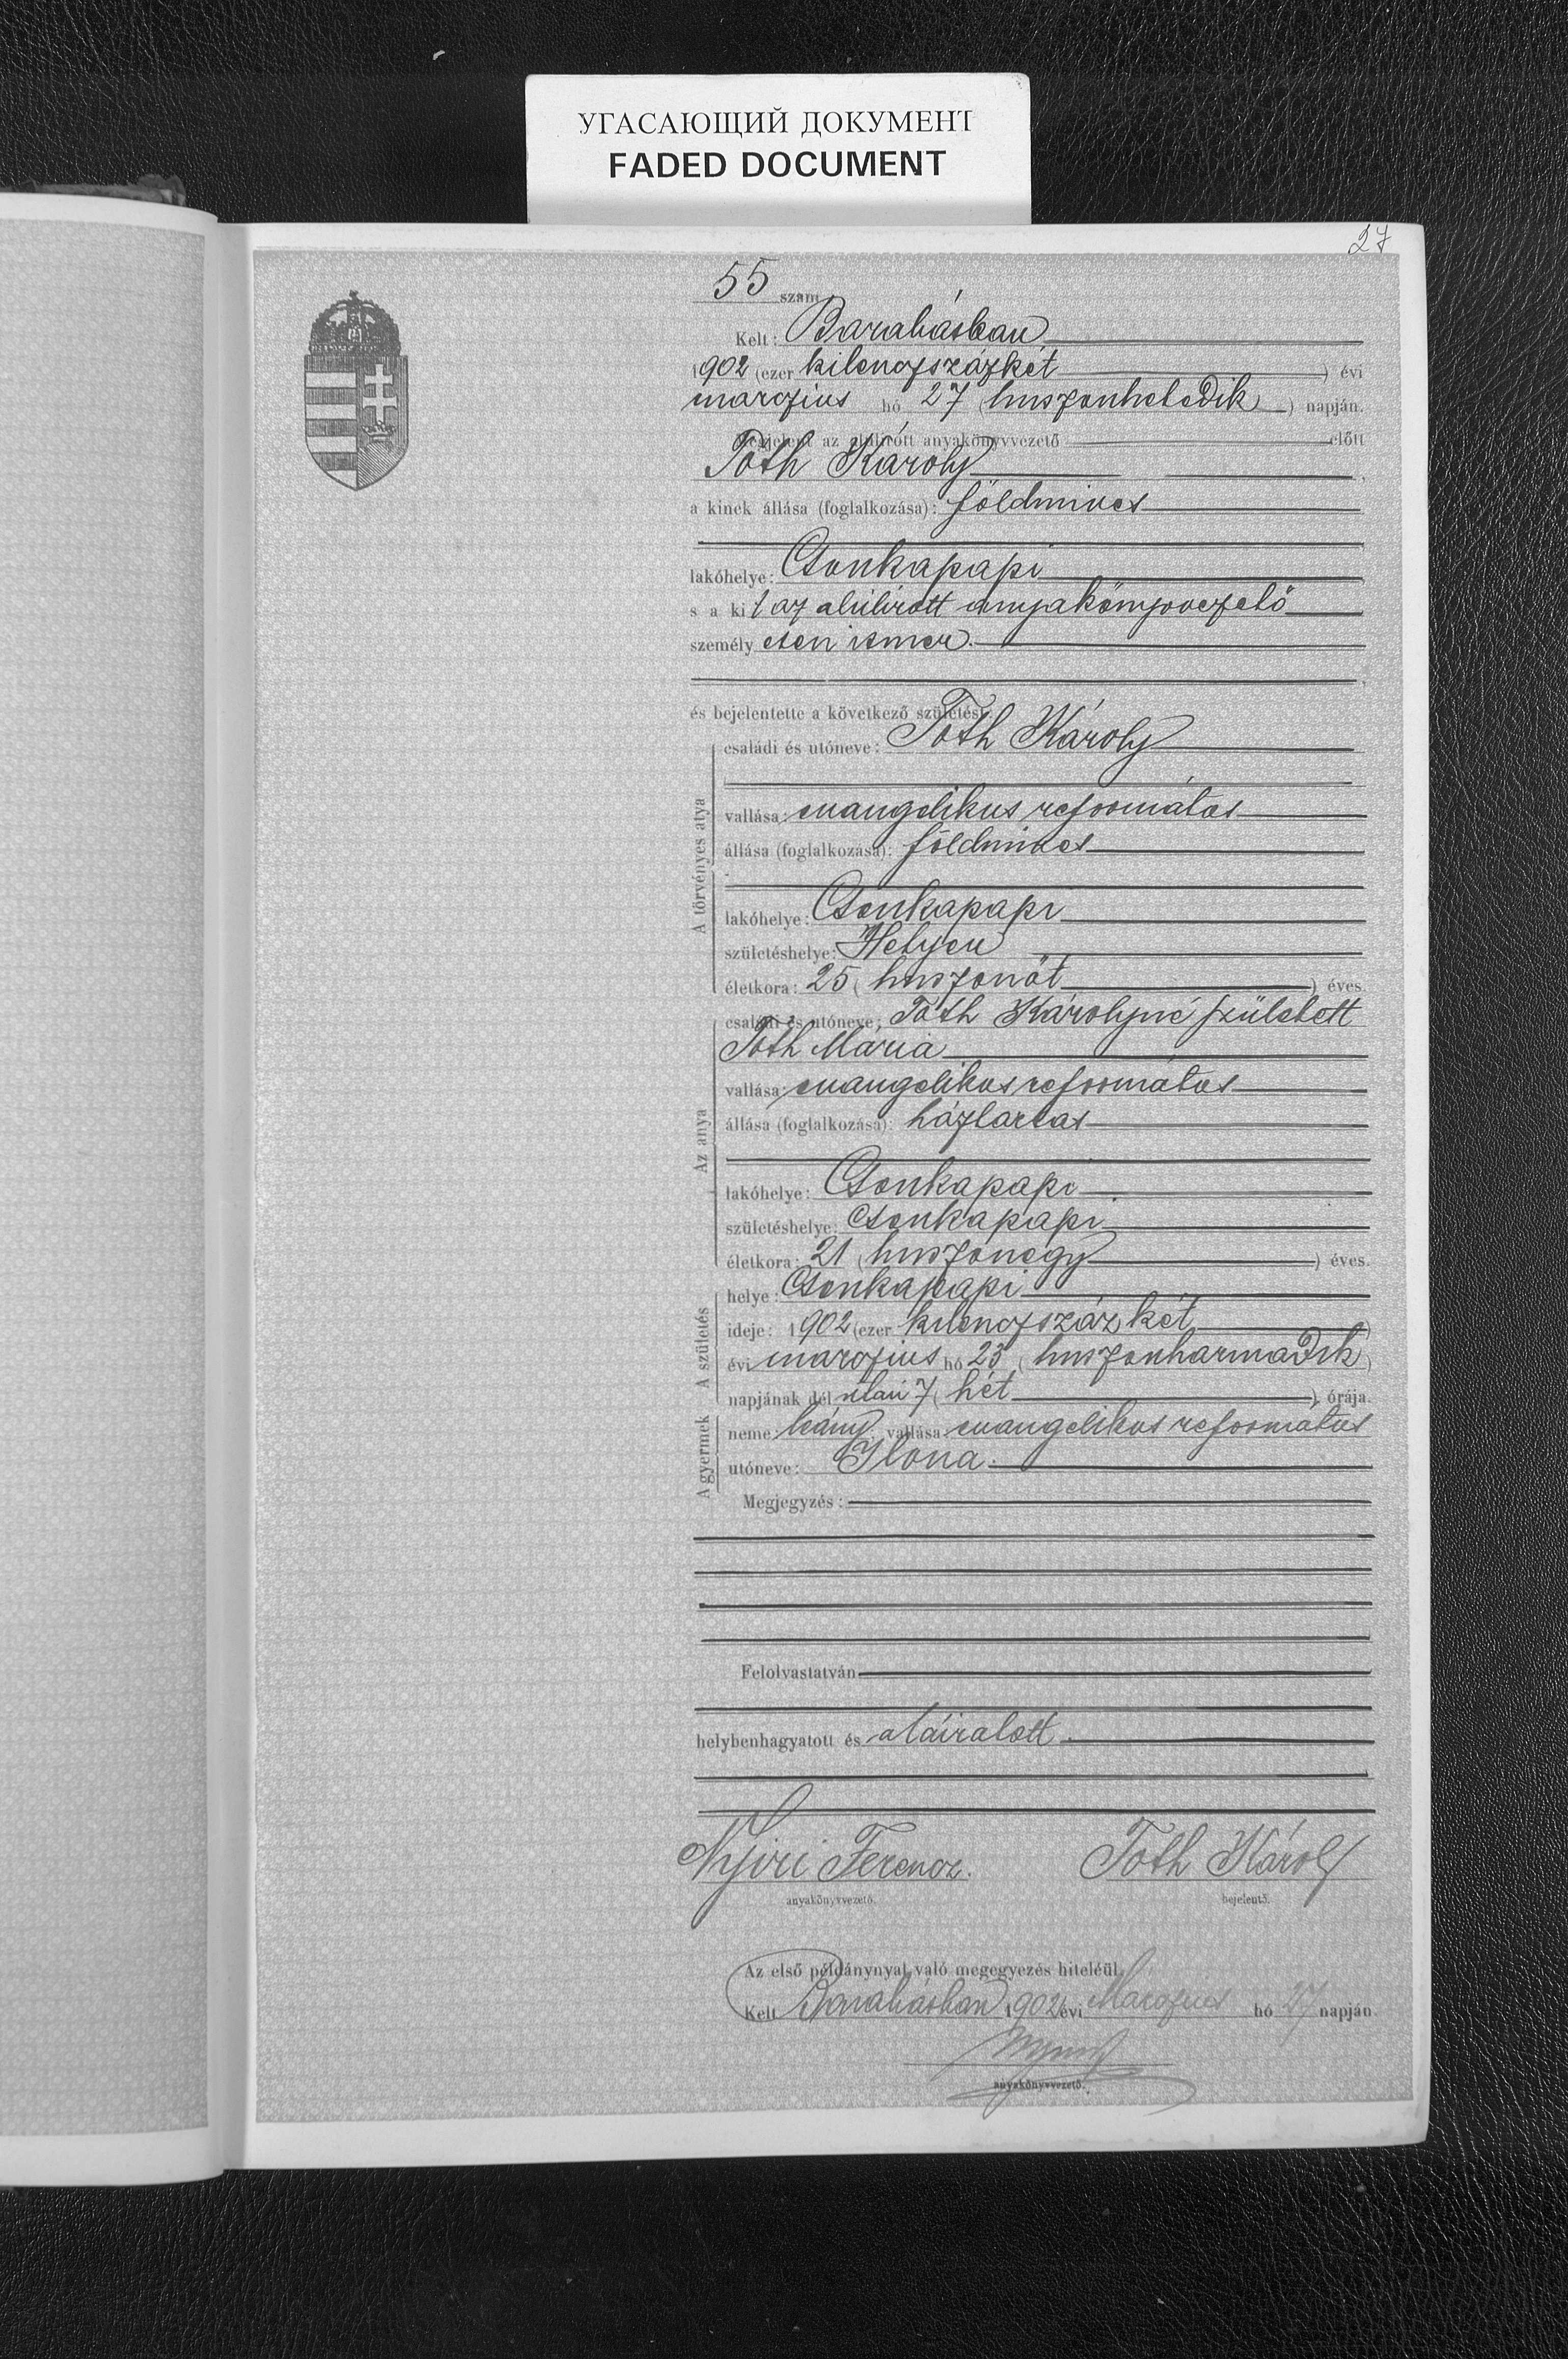 УГАСАЮЩИЙ ДОКУМЕНТ
FADED DOCUMENT
27
55 szám
Kelt: Barabásban
1902 (ezer kilenczszázkét) évi
marczius hó 27 (huszonhetedik) napján.
Megjelent az alulirott anyakönyvvezető előtt
Tóth Károly
a kinek állása (foglalkozása): földmives
lakóhelye: Csonkapapi
s a kit az alúlirott anyakönyvvezető
személyesen ismer.
és bejelentette a következő születést:
A törvényes atya
családi és utóneve: Tóth Károly
vallása: evangelikus református
állása (foglalkozása): földmives
lakóhelye: Csonkapapi
születéshelye: Hetyen
életkora: 25 (huszonöt) éves.
Az anya
családi és utóneve: Tóth Károlyné született
Tóth Mária
vallása: evangelikus református
állása (foglalkozása): háztartás
lakóhelye: Csonkapapi
születéshelye: Csonkapapi
életkora: 21 (huszonegy) éves.
A születés
helye: Csonkapapi
ideje: 1902 (ezer kilenczszáz két)
évi marczius hó 23 (huszonharmadik)
napjának dél után 7 (hét) órája.
A gyermek
neme: leány, vallása: evangelikus református
utóneve: Ilona.
Megjegyzés:
Felolvastatván
helybenhagyatott és aláiratott.
Nyiri Ferencz. Tóth Károly
anyakönyvvezető. bejelentő.
Az első példánynyal való megegyezés hiteléül.
Kelt Barabásban 1902 évi Marczius hó 27 napján.
anyakönyvvezető.